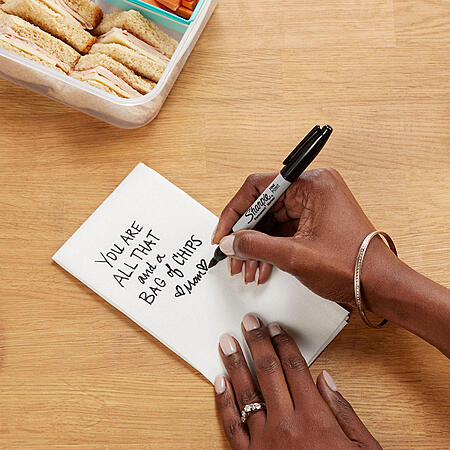 YOU ARE
ALL THAT
and a
BAG of CHIPS
♡ mom ♡
Sharpie